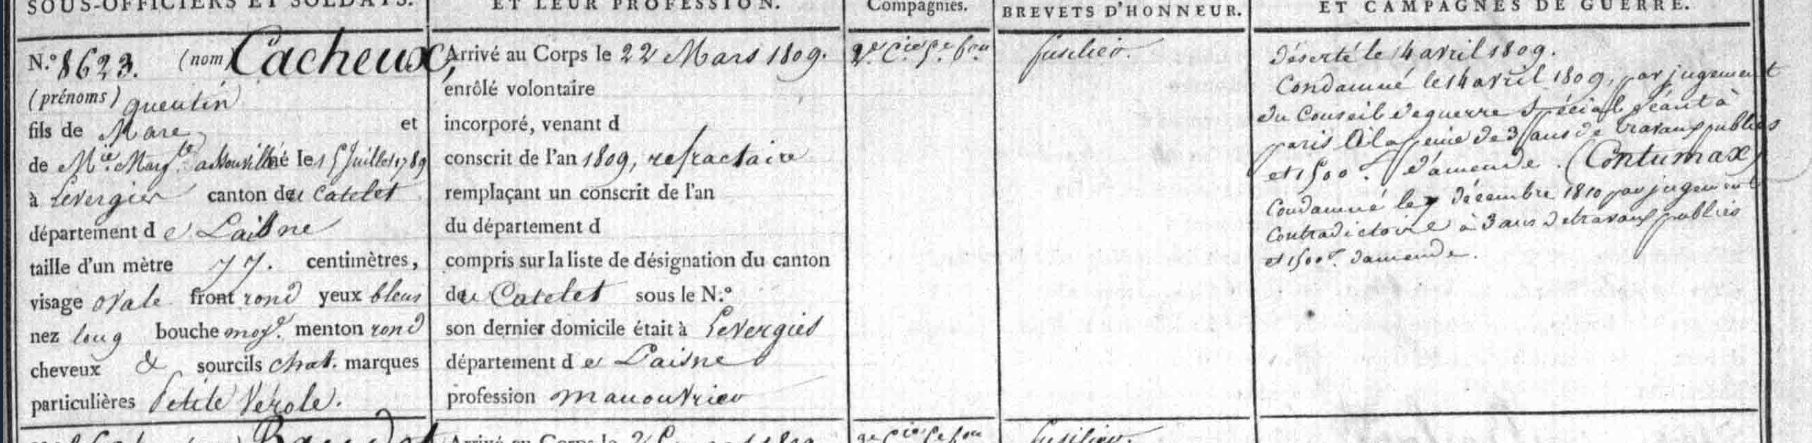 SOUS-OFFICIERS ET SOLDATS.
ET LEUR PROFESSION.
Compagnies.
BREVETS D'HONNEUR.
ET CAMPAGNES DE GUERRE.
N.º 8623. (nom) Cacheux,
(prénoms) quentin
fils de Marc et
de M.ie Marg.te né le 15 Juillet 1789
à Levergies canton de u Catelet
département d e L'aisne
taille d'un mètre 77. centimètres,
visage ovale front rond yeux bleus
nez long bouche moy.e menton rond
cheveux & sourcils chat. marques
particulières Petite Vérole.
Arrivé au Corps le 22 Mars 1809.
enrôlé volontaire
incorporé, venant d
conscrit de l'an 1809, refractaire
remplaçant un conscrit de l'an
du département d
compris sur la liste de désignation du canton
de u Catelet sous le N.º
son dernier domicile était à Levergies
département d e L'aisne
profession manouvrier
2.e C.ie 5.e b.on
fusilier.
Déserté le 14 avril 1809.
Condamné le 14 avril 1809, par jugement
du Conseil de guerre Spécial séant à
paris à la peine de 3 ans de travaux publics
et 1500.f d'amende. (Contumax)
Condamné le 7 décembre 1810 par jugement
Contradictoire à 3 ans de travaux publics
et 1500.f d'amende.
Arrivé au Corps le 1809
2.e C.ie 5.e b.on
fusilier.